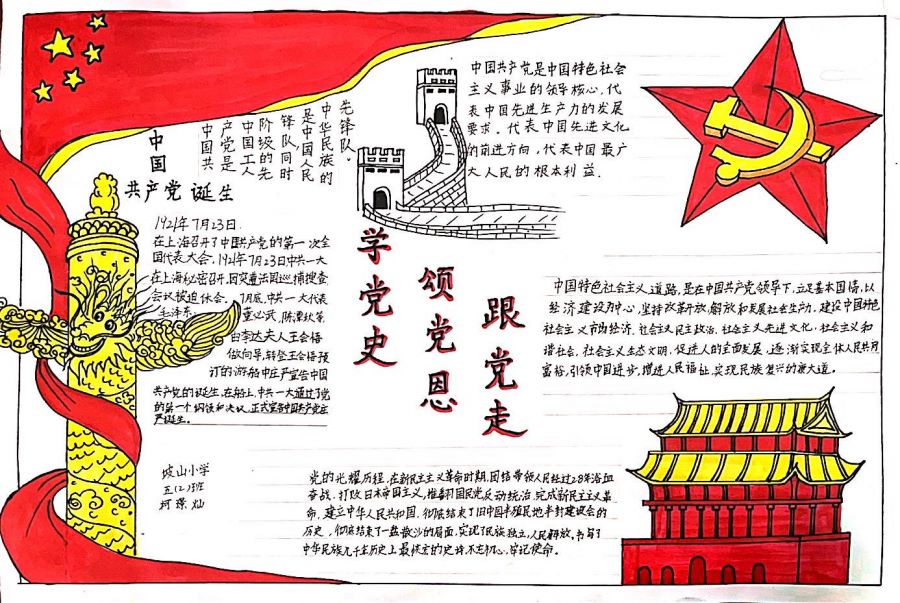 中国
共产党 诞生
中国共
产党是
中国工人
阶级的先
锋队,同时
是中国人民
中华民族的
先锋队。
1921年7月23日.
在上海召开了中国共产党的第一次全
国代表大会,1921年7月23日中共一大
在上海秘密召开,因突遭法国巡捕搜查
会议被迫休会。7月底,中共一大代表
毛泽东、董必武、陈潭秋等
由李达夫人王会悟
做向导,转至王会悟预
订的游船中庄严宣告中国
共产党的诞生,在船上,中共一大通过了党
的第一个纲领和决议,正式宣告中国共产党庄
严诞生。
坡山小学
五(2)班
学党史
颂党恩
跟党走
中国共产党是中国特色社会
主义事业的领导核心,代
表中国先进生产力的发展
要求,代表中国先进文化
的前进方向,代表中国最广
大人民的根本利益.
中国特色社会主义道路,是在中国共产党领导下,立足基本国情,以
经济建设为中心,坚持改革开放,解放和发展社会生产力,建设中国特色
社会主义市场经济,社会主义民主政治,社会主义先进文化,社会主义和
谐社会,社会主义生态文明,促进人的全面发展,逐渐实现全体人民共同
富裕,引领中国进步,增进人民福祉,实现民族复兴的康大道。
党的光耀历程,在新民主主义革命时期,团结带领人民经过28年浴血
奋战,打败日本帝国主义,推翻国民党反动统治,完成新民主主义革
命,建立中华人民共和国,彻底结束了旧中国半殖民地半封建社会的
历史,彻底结束了一盘散沙的局面,实现了民族独立,人民解放,书写了
中华民族几千年历史上最恢宏的史诗不忘初心,牢记使命。